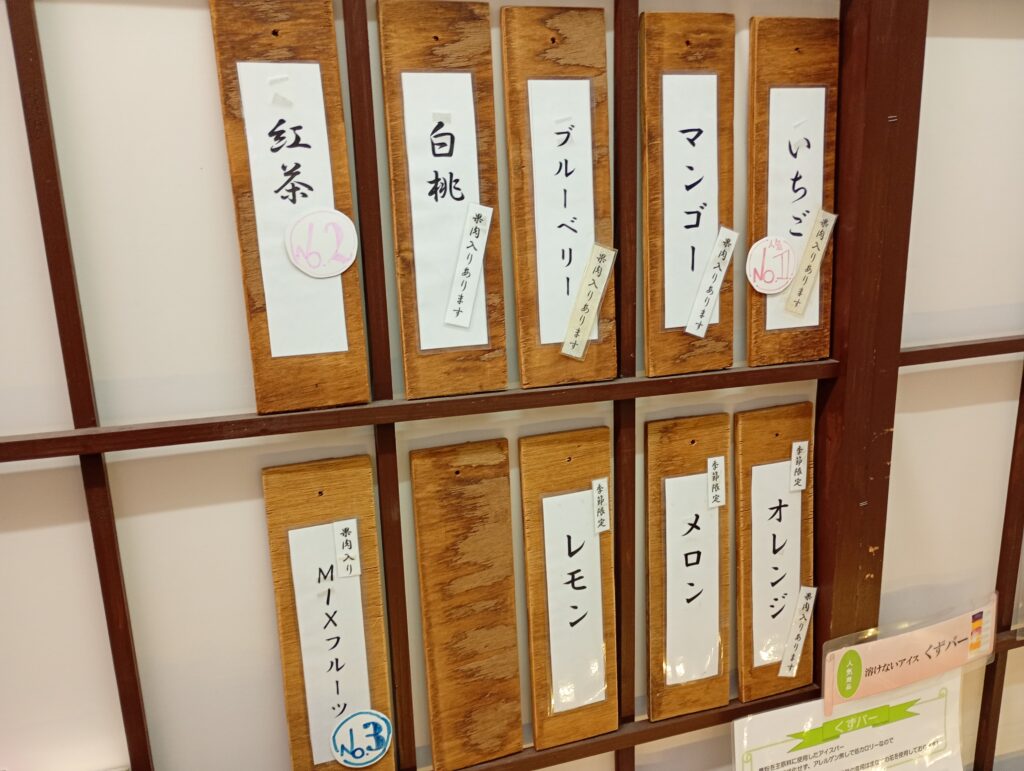 いちご
人気
No.1
果肉入りあります
マンゴー
果肉入りあります
ブルーベリー
果肉入りあります
白桃
果肉入りあります
紅茶
No.2
季節限定
オレンジ
果肉入りあります
季節限定
メロン
季節限定
レモン
果肉入り
MIXフルーツ
No.3
人気商品
溶けないアイス くずバー
くずバー